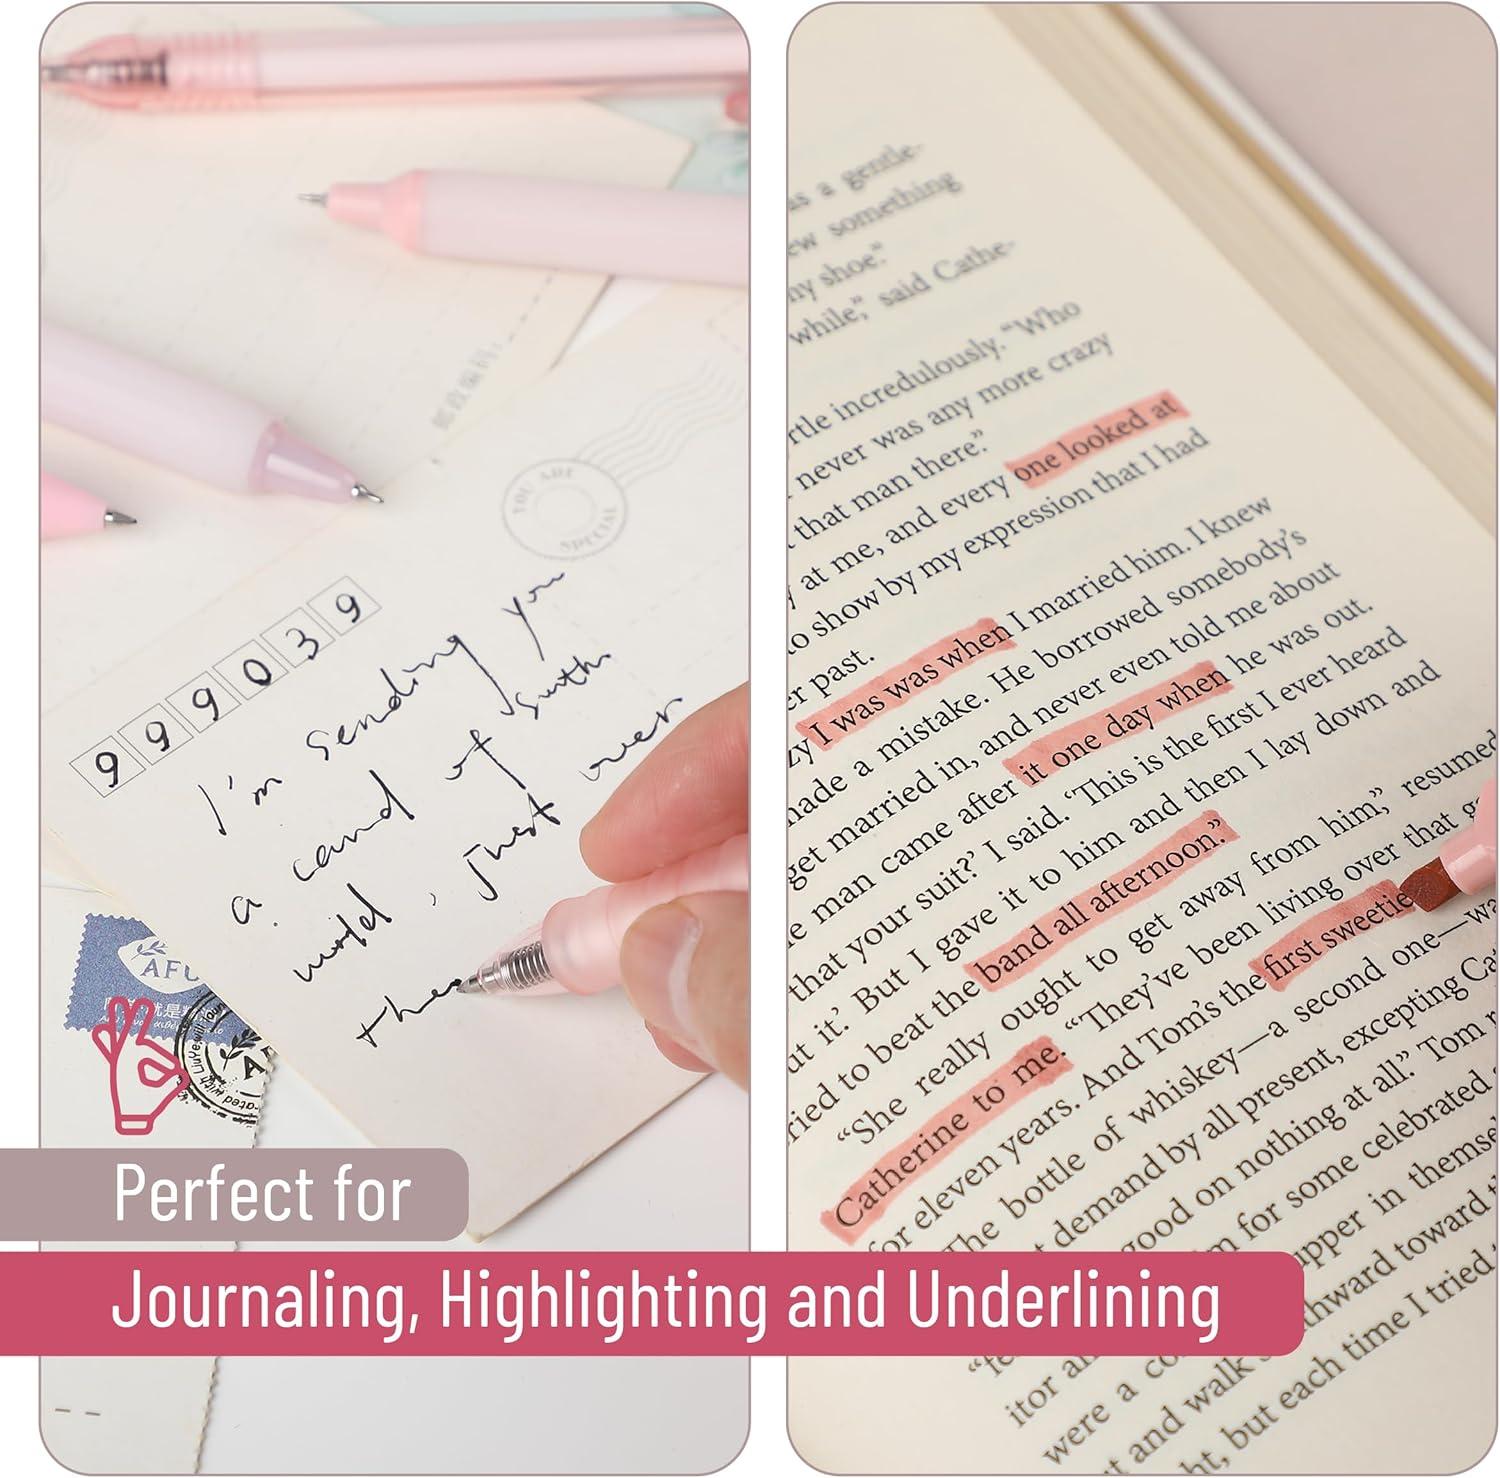 YOU ARE
SPECIAL
999039
I'm sending you
a card of
just over
AFU
Perfect for
Journaling, Highlighting and Underlining
as a gentle-
ew something
ny shoe."
while," said Cathe-
rtle incredulously. "Who
never was any more crazy
that man there."
y at me, and every one looked at
to show by my expression that I had
er past.
zy I was was when I married him. I knew
made a mistake. He borrowed somebody's
get married in, and never even told me about
e man came after it one day when he was out.
that your suit?' I said. 'This is the first I ever heard
ut it.' But I gave it to him and then I lay down and
ried to beat the band all afternoon."
"She really ought to get away from him," resumed
Catherine to me. "They've been living over that ga
for eleven years. And Tom's the first sweetie
The bottle of whiskey—a second one—wa
t demand by all present, excepting Cat
good on nothing at all." Tom r
m for some celebrated
upper in themse
thward toward t
itor a
were a co
t and walk
ht, but each time I tried